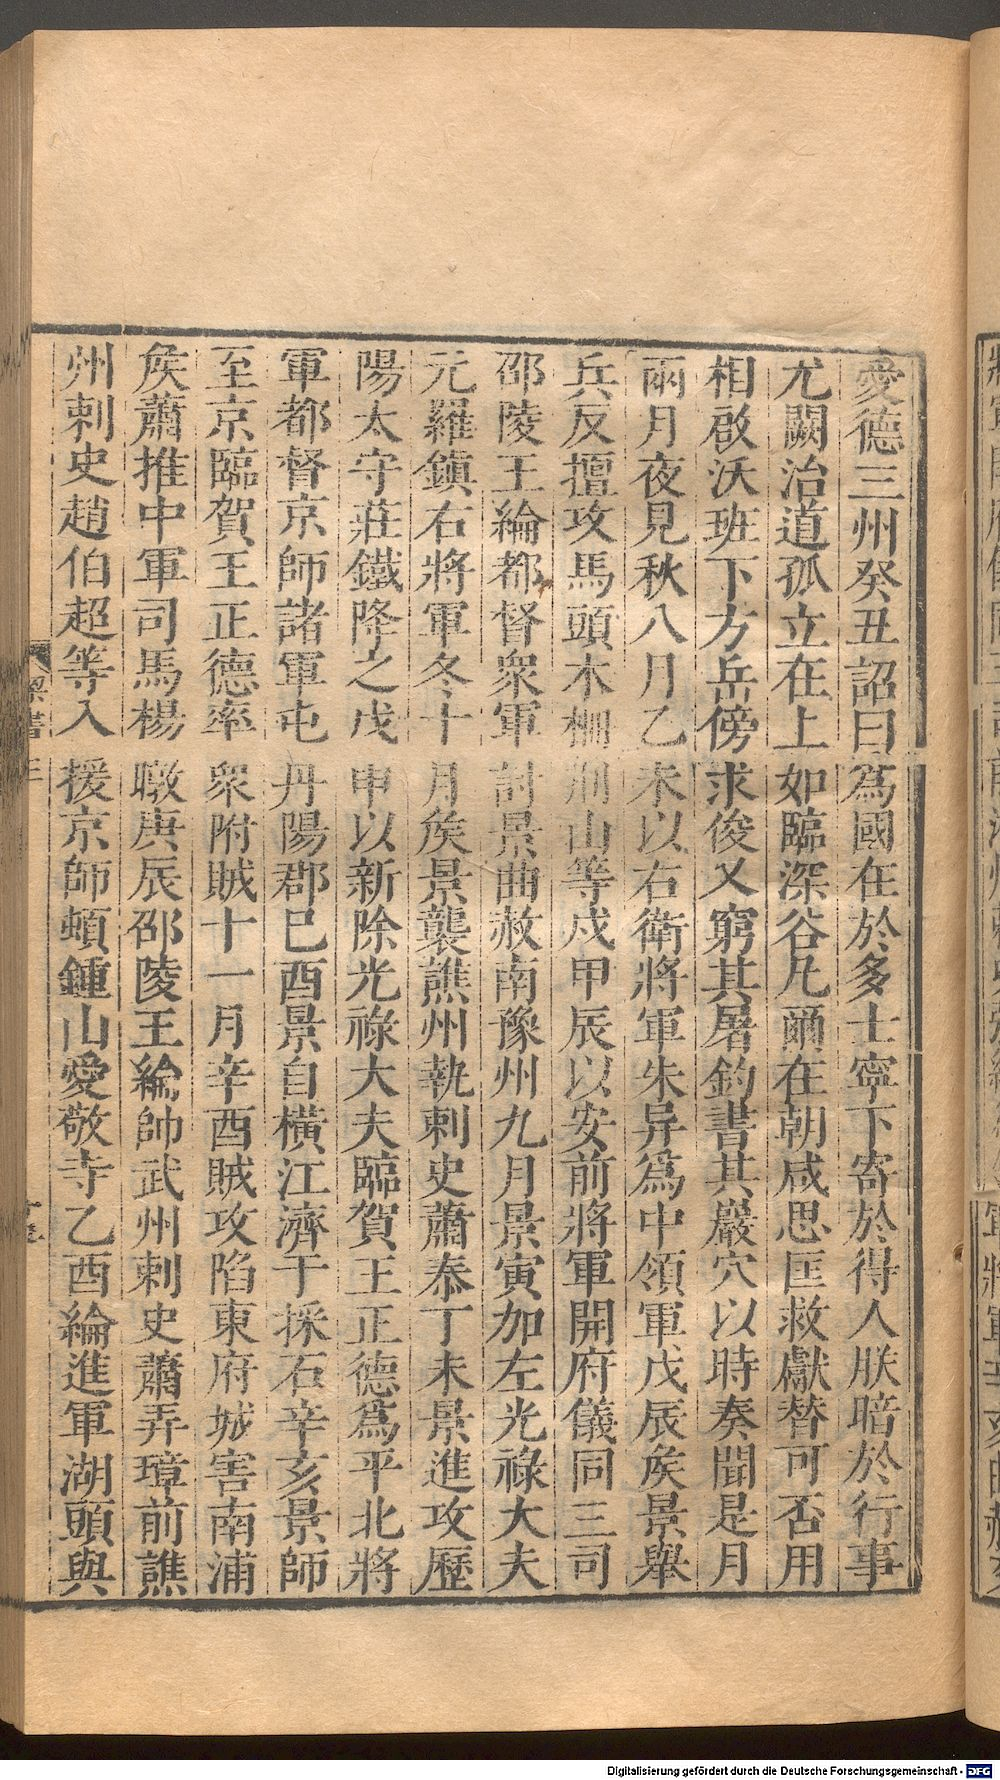 愛德三州癸丑詔曰爲國在於多士寧下寄於得人朕暗於行事
尤闕治道孤立在上如臨深谷凡爾在朝咸思匡救獻替可否用
相啟沃班下方岳傍求俊乂窮其屠釣書其巖穴以時奏聞是月
兩月夜見秋八月乙未以右衛將軍朱异爲中領軍戊辰矦景舉
兵反擅攻馬頭木柵荆山等戍甲辰以安前將軍開府儀同三司
邵陵王綸都督衆軍討景曲赦南豫州九月景寅加左光祿大夫
元羅鎮右將軍冬十月矦景襲譙州執刺史蕭泰丁未景進攻歷
陽太守莊鐵降之戊申以新除光祿大夫臨賀王正德爲平北將
軍都督京師諸軍屯丹陽郡巳酉景自橫江濟于採石辛亥景師
至京臨賀王正德率衆附賊十一月辛酉賊攻陷東府城害南浦
矦蕭推中軍司馬楊暾庚辰邵陵王綸帥武州刺史蕭弄璋前譙
州刺史趙伯超等入援京師頓鍾山愛敬寺乙酉綸進軍湖頭與
梁書三
Digitalisierung gefördert durch die Deutsche Forschungsgemeinschaft - DFG